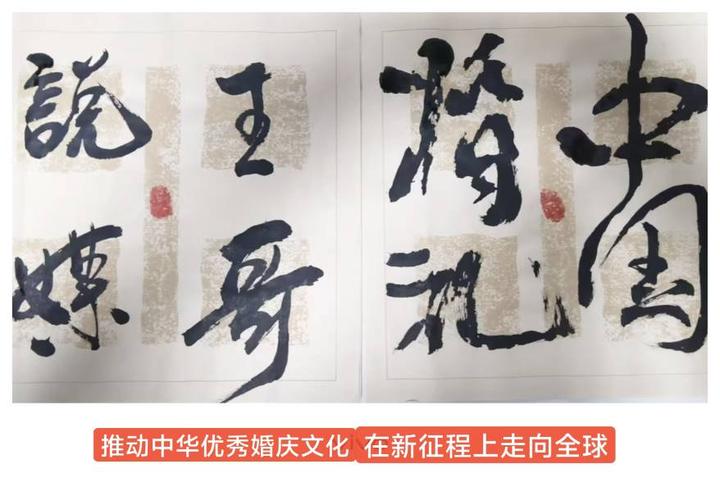 中国
婚礼
王哥
說媒
推动中华优秀婚庆文化 在新征程上走向全球